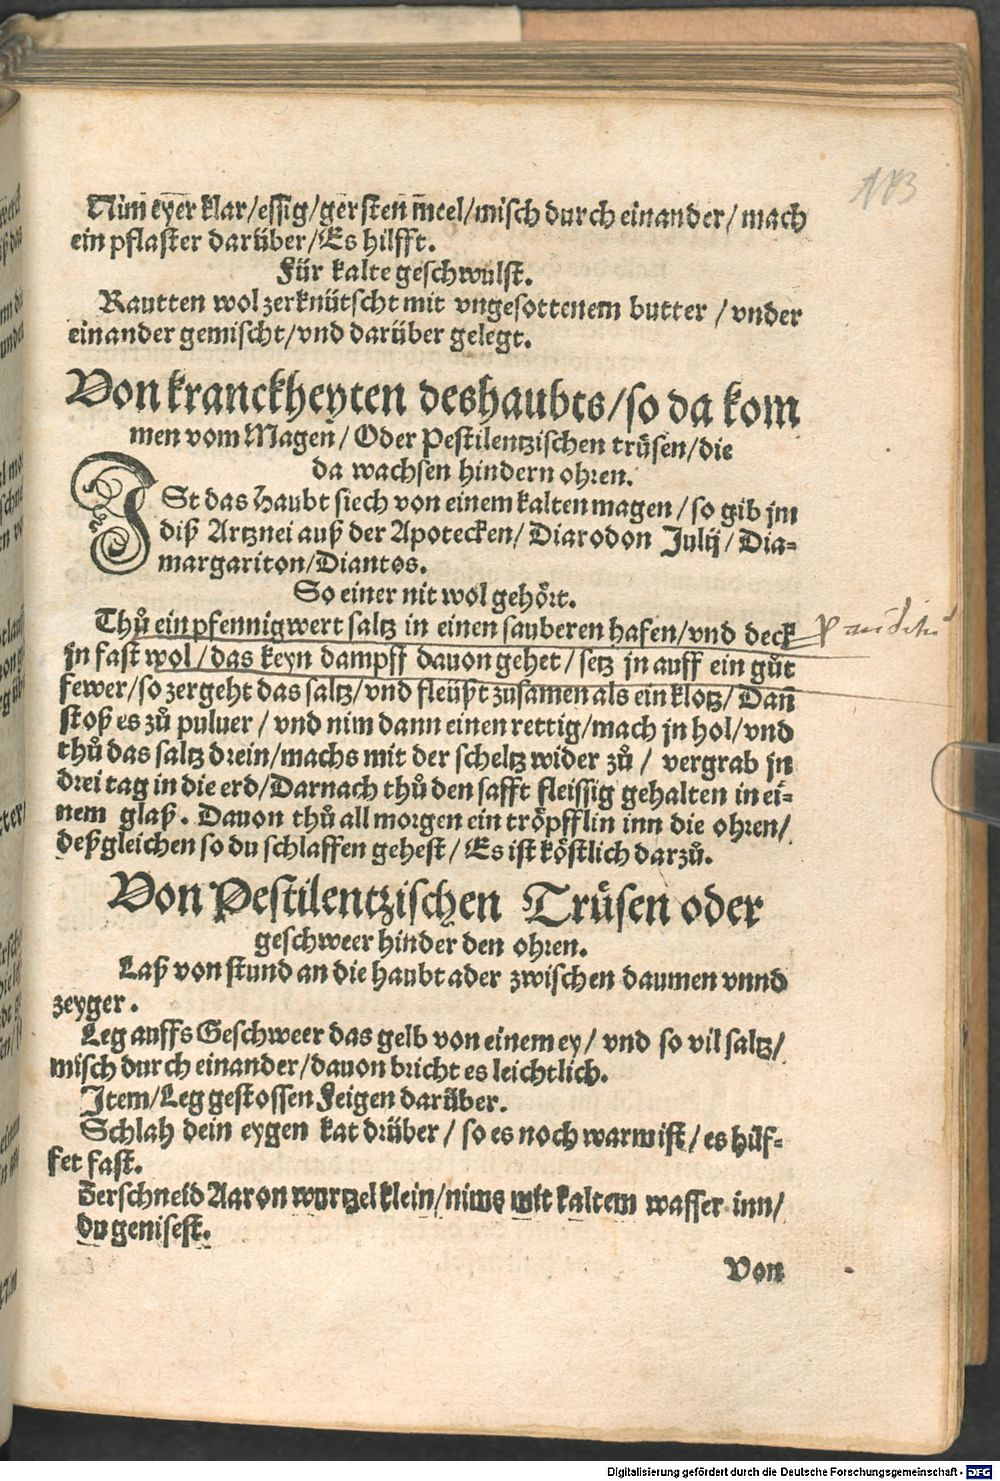 193
Nim eyer klar/essig/gersten meel/misch durch einander/ mach
ein pflaster darüber/Es hilfft.
Für kalte geschwulst.
Rautten wol zerknütscht mit vngesottenem butter / vnder
einander gemischt/vnd darüber gelegt.
Von kranckheyten deshaubts/so da kom
men vom Magen/ Oder Pestilentzischen trüsen/die
da wachsen hindern ohren.
ISt das Haubt siech von einem kalten magen / so gib jm
diß Artznei auß der Apotecken/ Diarodon Julij/ Dia-
margariton/Diantos.
So einer nit wol gehört.
Thů ein pfennigwert saltz in einen sauberen hafen/vnd deck
jn fast wol/das keyn dampff dauon gehet/ setz jn auff ein gůt
fewer/so zergeht das saltz/vnd fleüßt zusamen als ein klotz/ Dañ
stoß es zů puluer / vnd nim dann einen rettig/mach jn hol/vnd
thů das saltz drein/machs mit der scheltz wider zů / vergrab jn
drei tag in die erd/Darnach thů den safft fleissig gehalten in ei-
nem glaß. Dauon thů all morgen ein tröpfflin inn die ohren/
deßgleichen so du schlaffen gehest/ Es ist köstlich darzů.
Von Pestilentzischen Trüsen oder
geschweer hinder den ohren.
Laß von stund an die haubt ader zwischen daumen vnnd
zeyger.
Leg auffs Geschweer das gelb von einem ey/ vnd so vil saltz/
misch durch einander/dauon bricht es leichtlich.
Item/Leg gestossen Feigen darüber.
Schlah dein eygen kat drüber / so es noch warm ist/ es hilf-
fet fast.
Zerschneid Aaron wurtzel klein/nims mit kaltem wasser inn/
du genisest.
Von
Digitalisierung gefördert durch die Deutsche Forschungsgemeinschaft - DFG